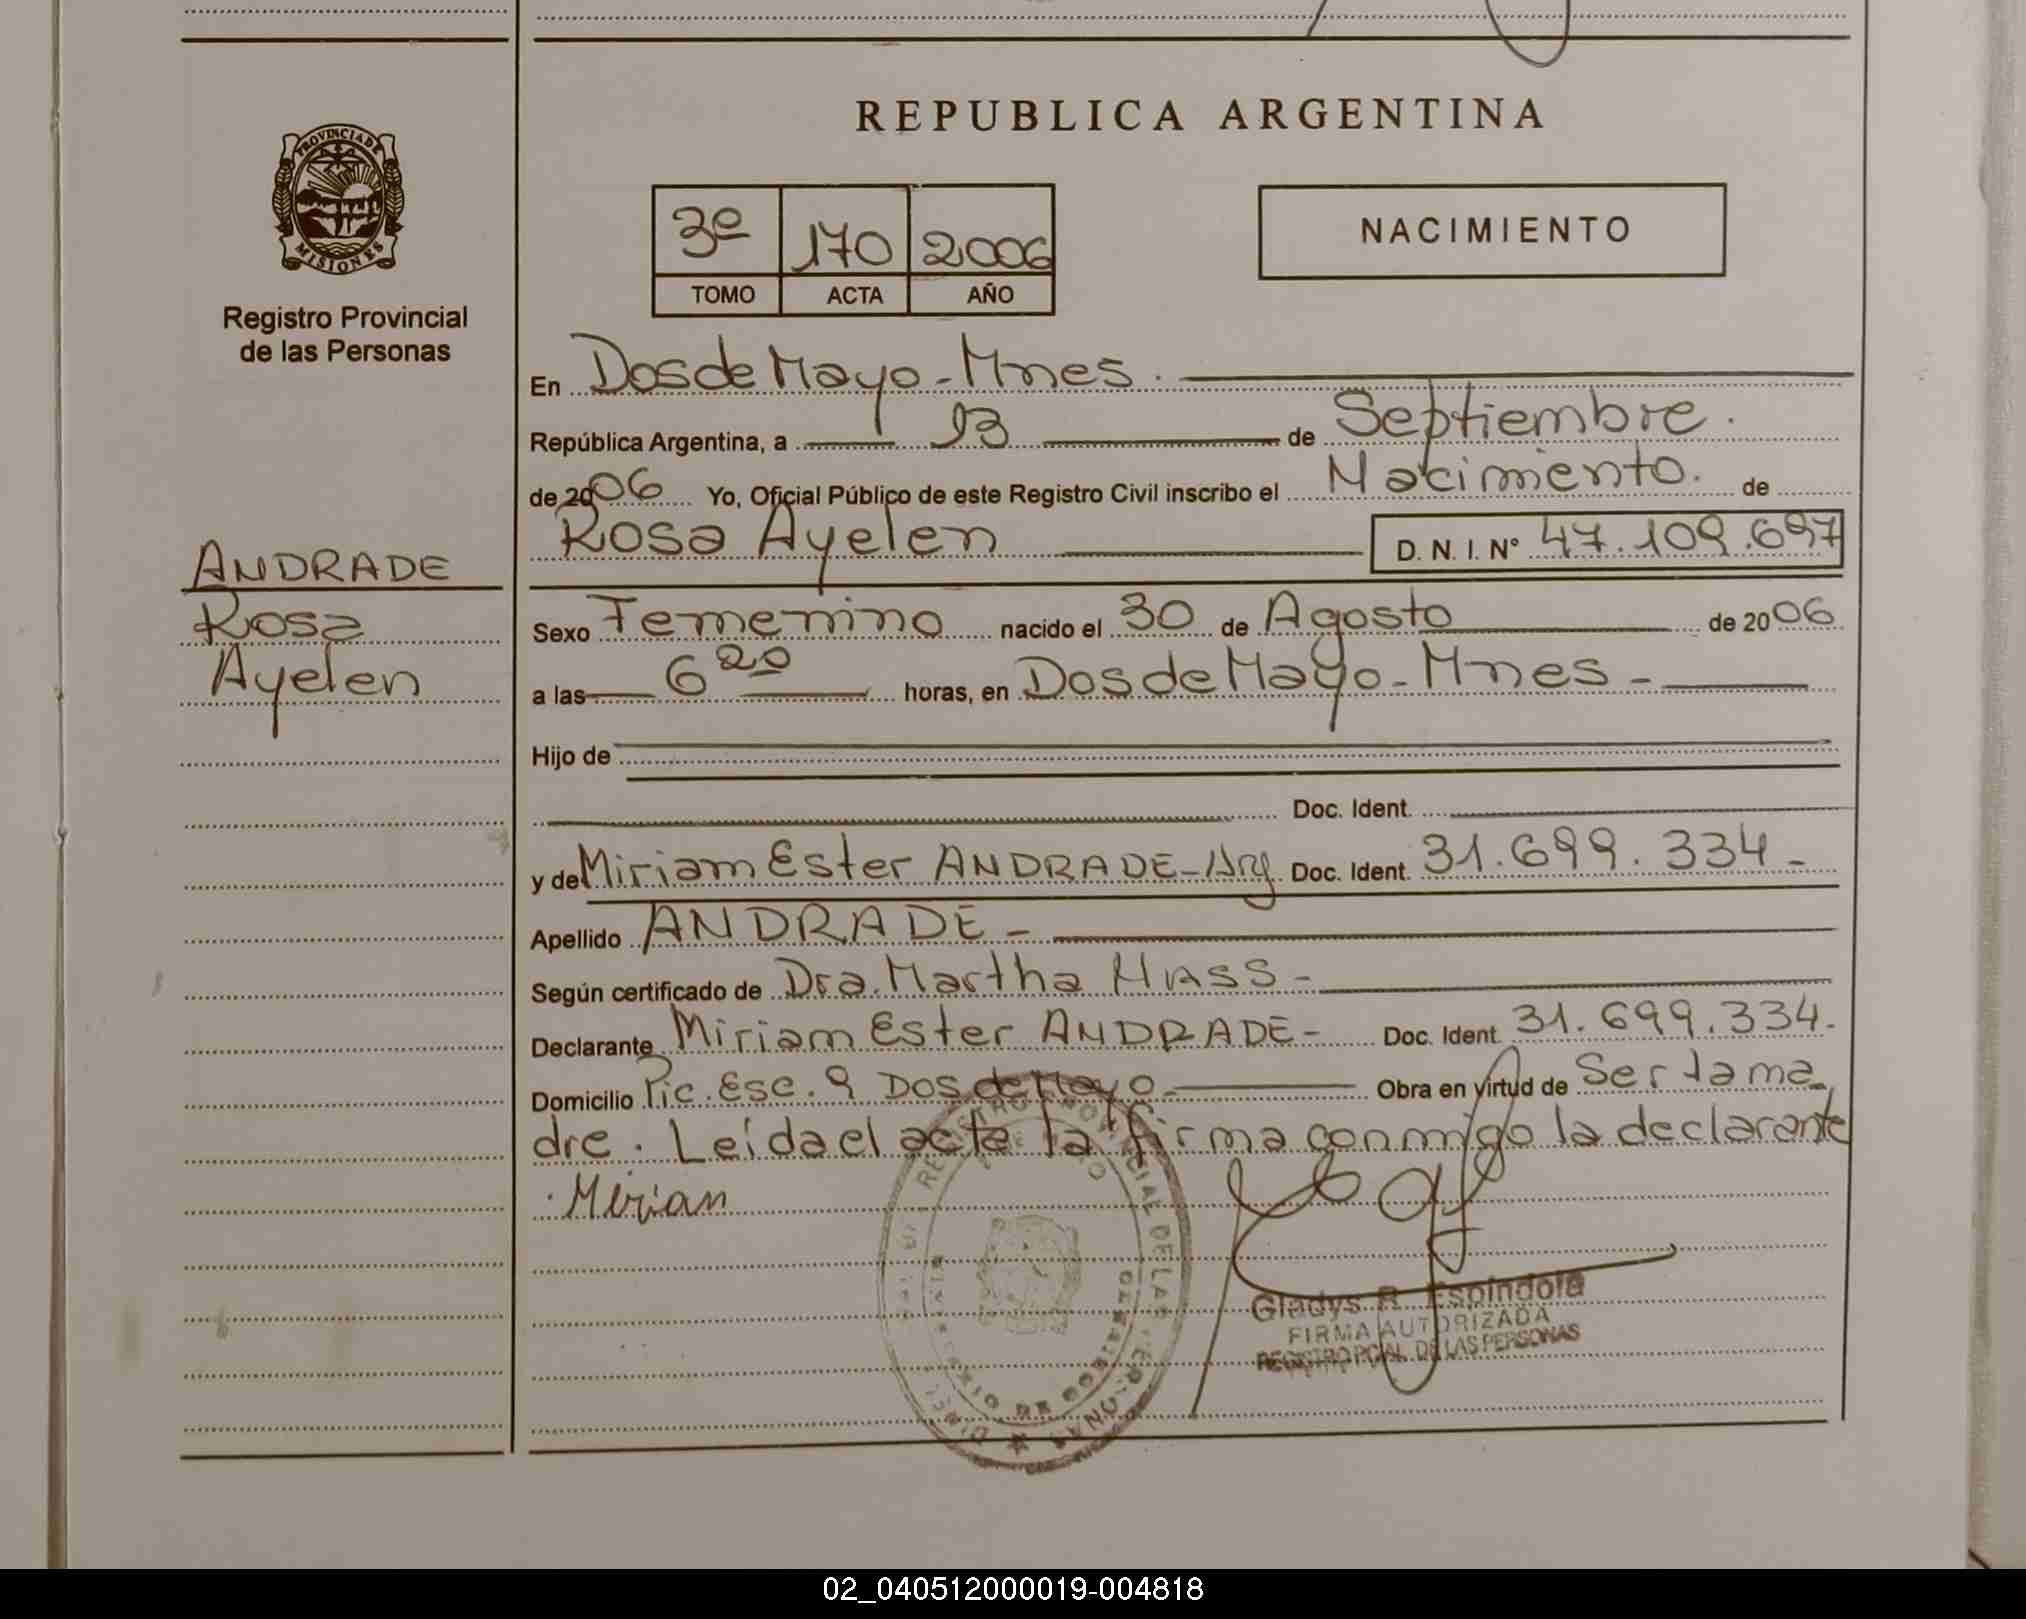 PROVINCIA DE
MISIONES
Registro Provincial
de las Personas
ANDRADE
Rosa
Ayelen
REPUBLICA ARGENTINA
3º 170 2006
TOMO ACTA AÑO
NACIMIENTO
En Dos de Mayo - Mnes.
República Argentina, a 13 de Septiembre.
de 2006 Yo, Oficial Público de este Registro Civil inscribo el Nacimiento. de
Rosa Ayelen D. N. I. Nº 47.109.697
Sexo Femenino nacido el 30 de Agosto de 2006
a las 6 20 horas, en Dos de Mayo - Mnes -
Hijo de
Doc. Ident.
y de Miriam Ester ANDRADE - Arg. Doc. Ident. 31.699.334 -
Apellido ANDRADE -
Según certificado de Dra. Martha -
Declarante Miriam Ester ANDRADE - Doc. Ident. 31.699.334 -
Domicilio Pic. Esc. 9 Dos de Mayo - Obra en virtud de Ser la ma
dre. Leida el acta la firma conmigo la declarante
Mirian
Gladys R. Espindola
FIRMA AUTORIZADA
REGISTRO PCIAL. DE LAS PERSONAS
02_040512000019-004818